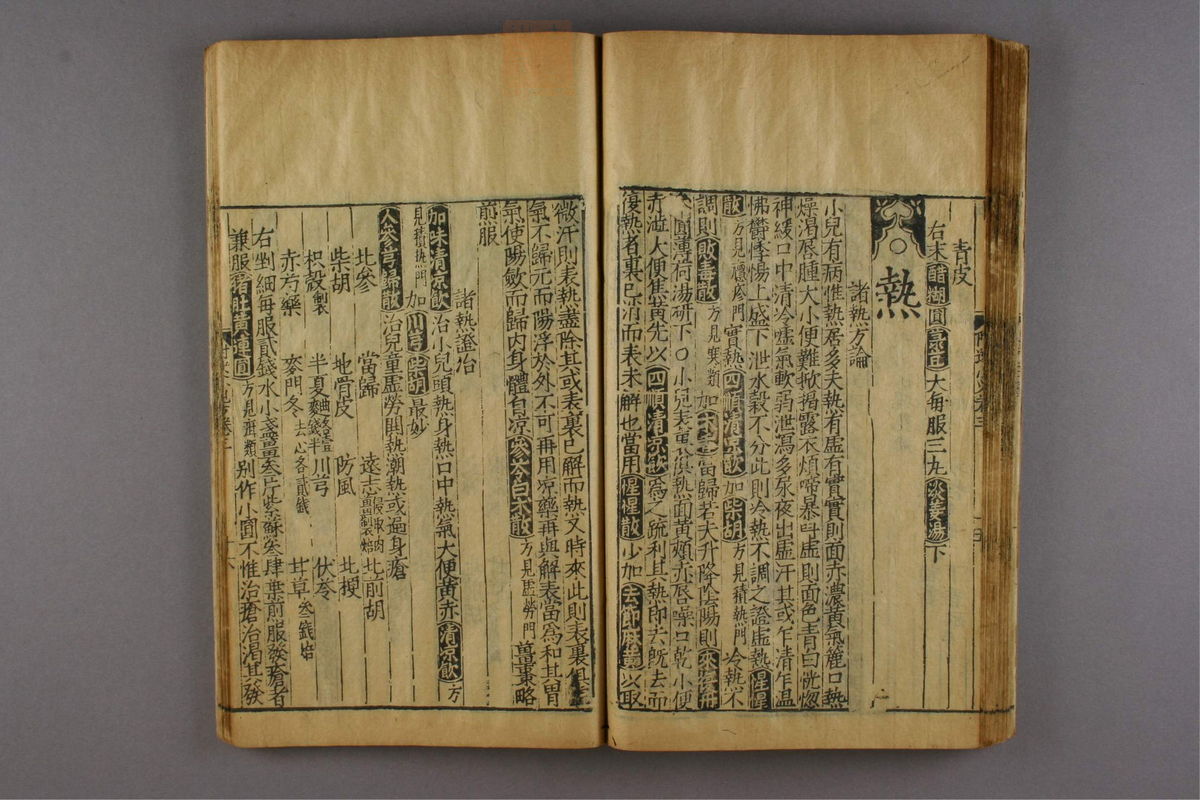 青皮
右末醋糊圓菉豆大每服三九淡姜湯下
熱
諸熱方論
小兒有病惟熱居多夫熱有虛有實實則面赤濃黃氣麄口熱
燥渴唇腫大小便難掀揭露衣煩啼暴叫虛則面色青白恍惚
神緩口中清冷虛氣軟弱泄瀉多尿夜出虛汗其或乍清乍温
怫鬱悸惕上盛下泄水穀不分此則冷熱不調之證虛熱惺惺
散方見癮疹門實熱四順清凉飲加柴胡方見積熱門冷熱不
調則敗毒散方見寒類加木香當歸若大升降陰陽則來復丹
圓薄荷湯研下〇小兒表裏俱熱面黃頰赤唇燥口乾小便
赤澁大便焦黃先以四順清凉飲爲之疏利其熱即去既去而
復熱者裏已清而表未解也當用惺惺散少加去節麻黃以取
微汗則表熱盡除其或表裏已解而熱又時來此則表裏俱
氣不歸元而陽浮於外不可再用凉藥再與解表當爲和其胃
氣使陽斂而歸内身體自凉參苓白朮散方見虛勞門薑棗略
煎服
諸熱證治
加味清凉飲治小兒頭熱身熱口中熱氣大便黃赤清凉飲方
見積熱門加川芎柴胡最妙
人參芎歸散治兒童虛勞閧熱潮熱或遍身瘡
北參 當歸 遠志 北前胡
柴胡 地骨皮 防風 北梗
枳殼製 半夏 川芎 伏苓
赤芍藥 麥門冬去心各貳錢 甘草叁錢焙
右剉細每服貳錢水小盞薑叁片紫蘇叁肆葉煎服發瘡者
兼服猪肚黃連圓方見疳類別作小圓不惟治瘡治渴其發